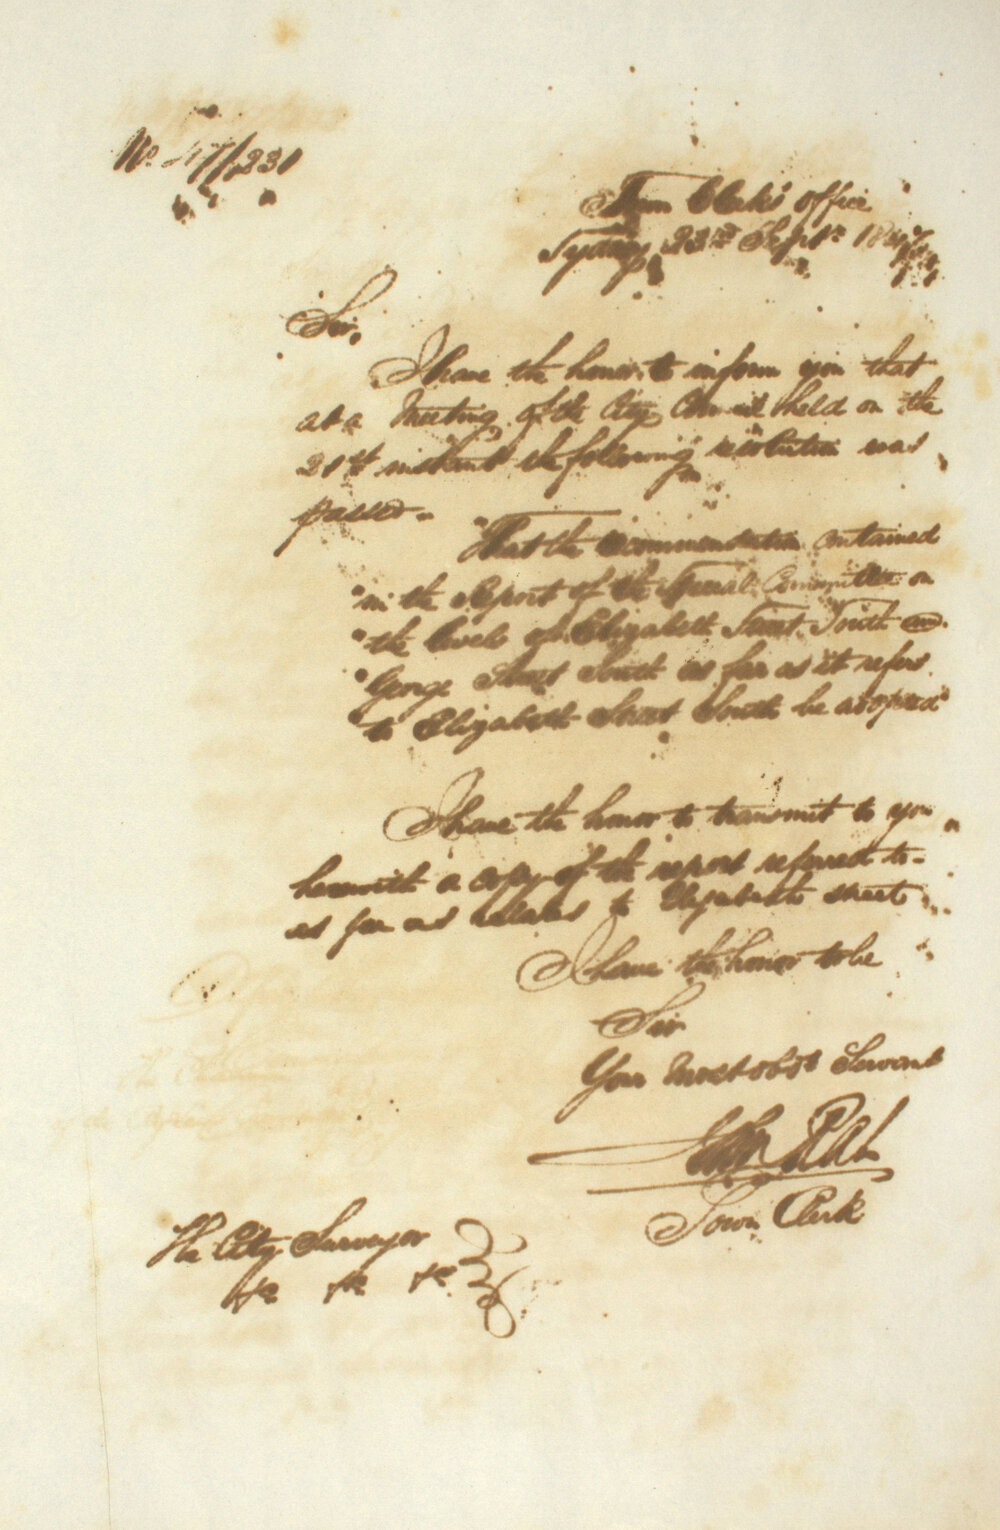 No. 47/231
Town Clerk's Office
Sydney 23rd Septr. 1847
Sir,
I have the honor to inform you that
at a Meeting of the City Council held on the
21st instant the following resolution was
passed.
"That the recommendation contained
"in the Report of the Special Committee on
"the levels of Elizabeth Street South and
"George Street South as far as it refers
"to Elizabeth Street South be adopted"
I have the honor to transmit to you
herewith a copy of the report referred to
as far as relates to Elizabeth street
I have the honor to be
Sir
Your most obdt Servant
John
Town Clerk
The City Surveyor
&c &c &c